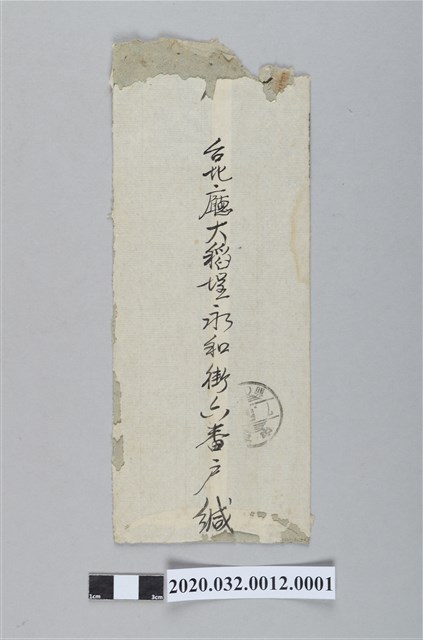 台北廳大稻埕永和街六番戶緘
1cm 3cm
2020.032.0012.0001